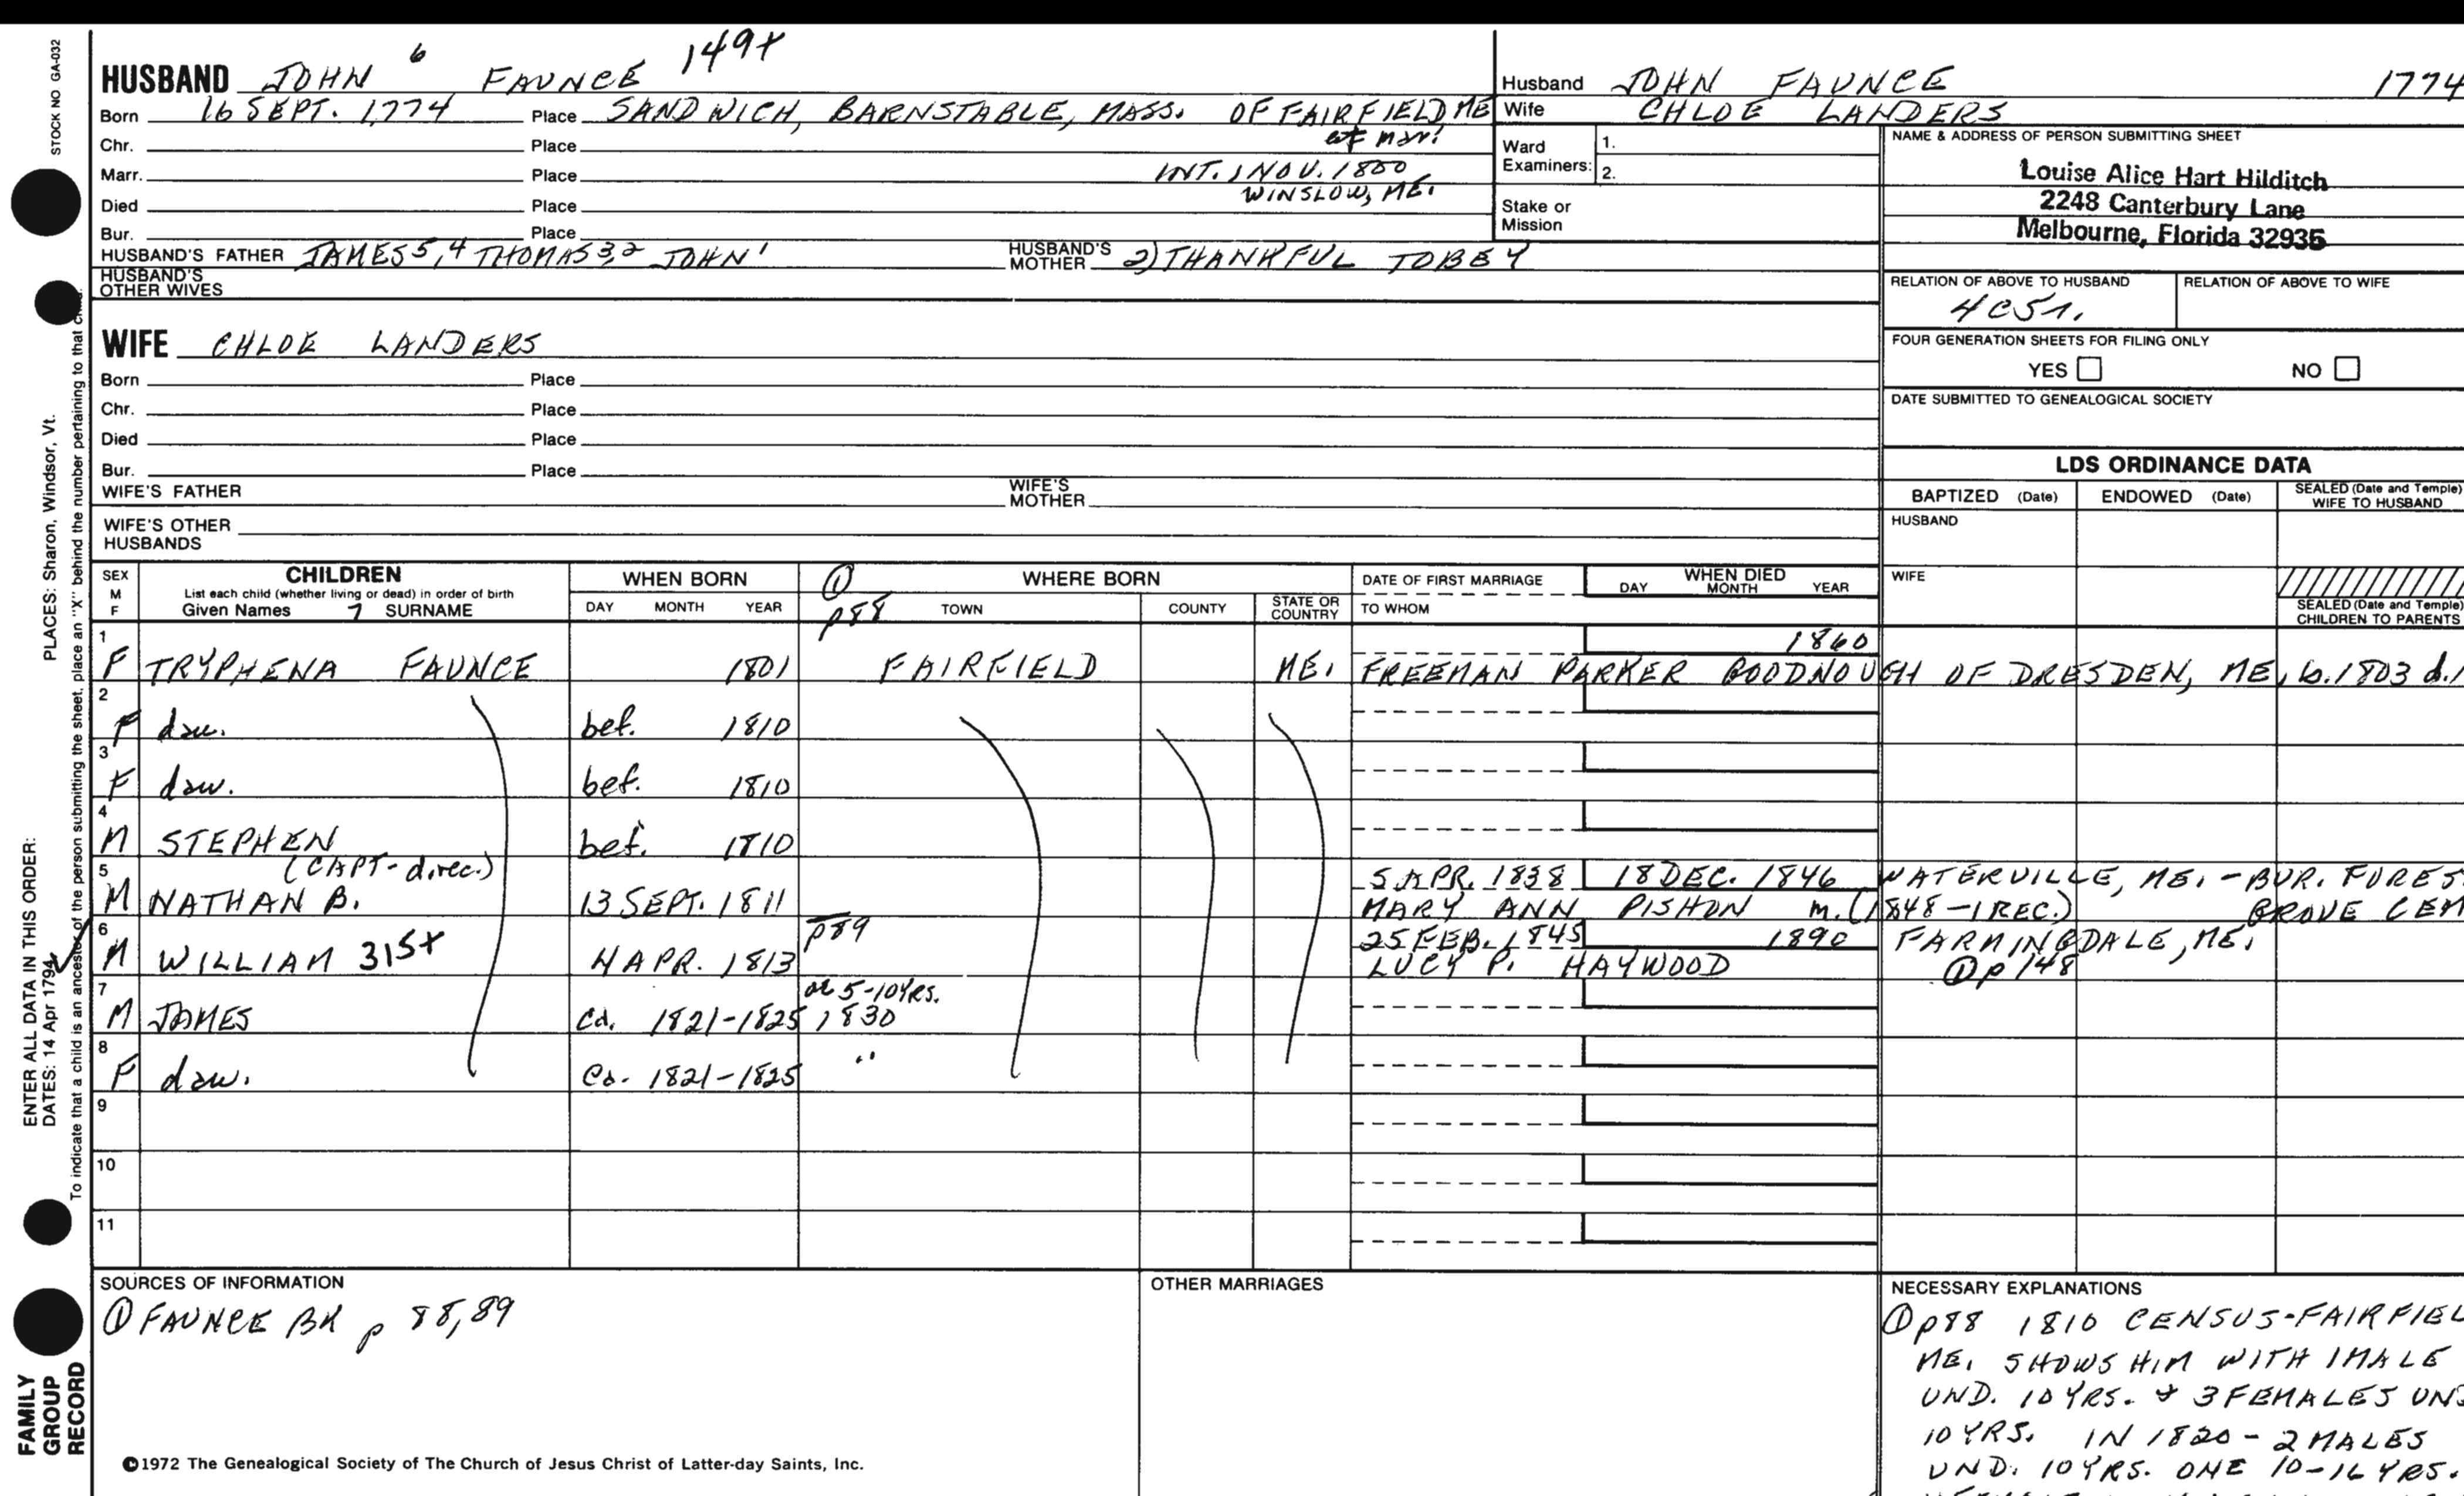 STOCK NO GA-032
HUSBAND JOHN 6 FAUNCE 149+
Born 16 SEPT. 1774 Place SANDWICH, BARNSTABLE, MASS. OF FAIRFIELD, ME
at mar.
Chr. Place
Marr. Place INT. 1 NOV. 1800
WINSLOW, ME.
Died Place
Bur. Place
HUSBAND'S FATHER JAMES5,4 THOMAS3,2 JOHN1 HUSBAND'S MOTHER 2) THANKFUL TOBEY
HUSBAND'S OTHER WIVES
WIFE CHLOE LANDERS
Born Place
Chr. Place
Died Place
Bur. Place
WIFE'S FATHER WIFE'S MOTHER
WIFE'S OTHER HUSBANDS
Husband JOHN FAUNCE 1774
Wife CHLOE LANDERS
Ward Examiners: 1.
2.
Stake or Mission
NAME & ADDRESS OF PERSON SUBMITTING SHEET
Louise Alice Hart Hilditch
2248 Canterbury Lane
Melbourne, Florida 32935
RELATION OF ABOVE TO HUSBAND RELATION OF ABOVE TO WIFE
4C5r.
FOUR GENERATION SHEETS FOR FILING ONLY
YES NO
DATE SUBMITTED TO GENEALOGICAL SOCIETY
LDS ORDINANCE DATA
BAPTIZED (Date) ENDOWED (Date) SEALED (Date and Temple) WIFE TO HUSBAND
HUSBAND
WIFE
SEALED (Date and Temple) CHILDREN TO PARENTS
SEX M F CHILDREN WHEN BORN ① WHERE BORN DATE OF FIRST MARRIAGE WHEN DIED
List each child (whether living or dead) in order of birth
Given Names 7 SURNAME DAY MONTH YEAR p88 TOWN COUNTY STATE OR COUNTRY TO WHOM DAY MONTH YEAR
1 1860
F TRYPHENA FAUNCE 1801 FAIRFIELD ME. FREEMAN PARKER GOODNOUGH OF DRESDEN, ME, b.1803 d.
2
F dau. bef. 1810
3
F dau. bef. 1810
4
M STEPHEN bef. 1810
(CAPT-direc.)
5 5 APR. 1838 18 DEC. 1846 WATERVILLE, ME. - BUR. FOREST
M NATHAN B. 13 SEPT. 1811 MARY ANN PISHON m. (1848-1 REC.) GROVE CEM
6 p89 25 FEB. 1845 1890 FARMINGDALE, ME.
M WILLIAM 315+ 4 APR. 1813 LUCY P. HAYWOOD ① p 148
7 or 5-10 YRS.
M JAMES ca. 1821-1825 1830
8
F dau. ca. 1821-1825 "
9
10
11
SOURCES OF INFORMATION
① FAUNCE BK p 88,89
©1972 The Genealogical Society of The Church of Jesus Christ of Latter-day Saints, Inc.
OTHER MARRIAGES
NECESSARY EXPLANATIONS
① p88 1810 CENSUS-FAIRFIEL
ME. SHOWS HIM WITH 1 MALE
UND. 10 YRS. & 3 FEMALES UND
10 YRS. IN 1820 - 2 MALES
UND. 10 YRS. ONE 10-16 YRS.
PLACES: Sharon, Windsor, Vt.
ENTER ALL DATA IN THIS ORDER:
DATES: 14 Apr 1794
To indicate that a child is an ancestor of the person submitting the sheet, place an "X" behind the number pertaining to that child.
FAMILY
GROUP
RECORD